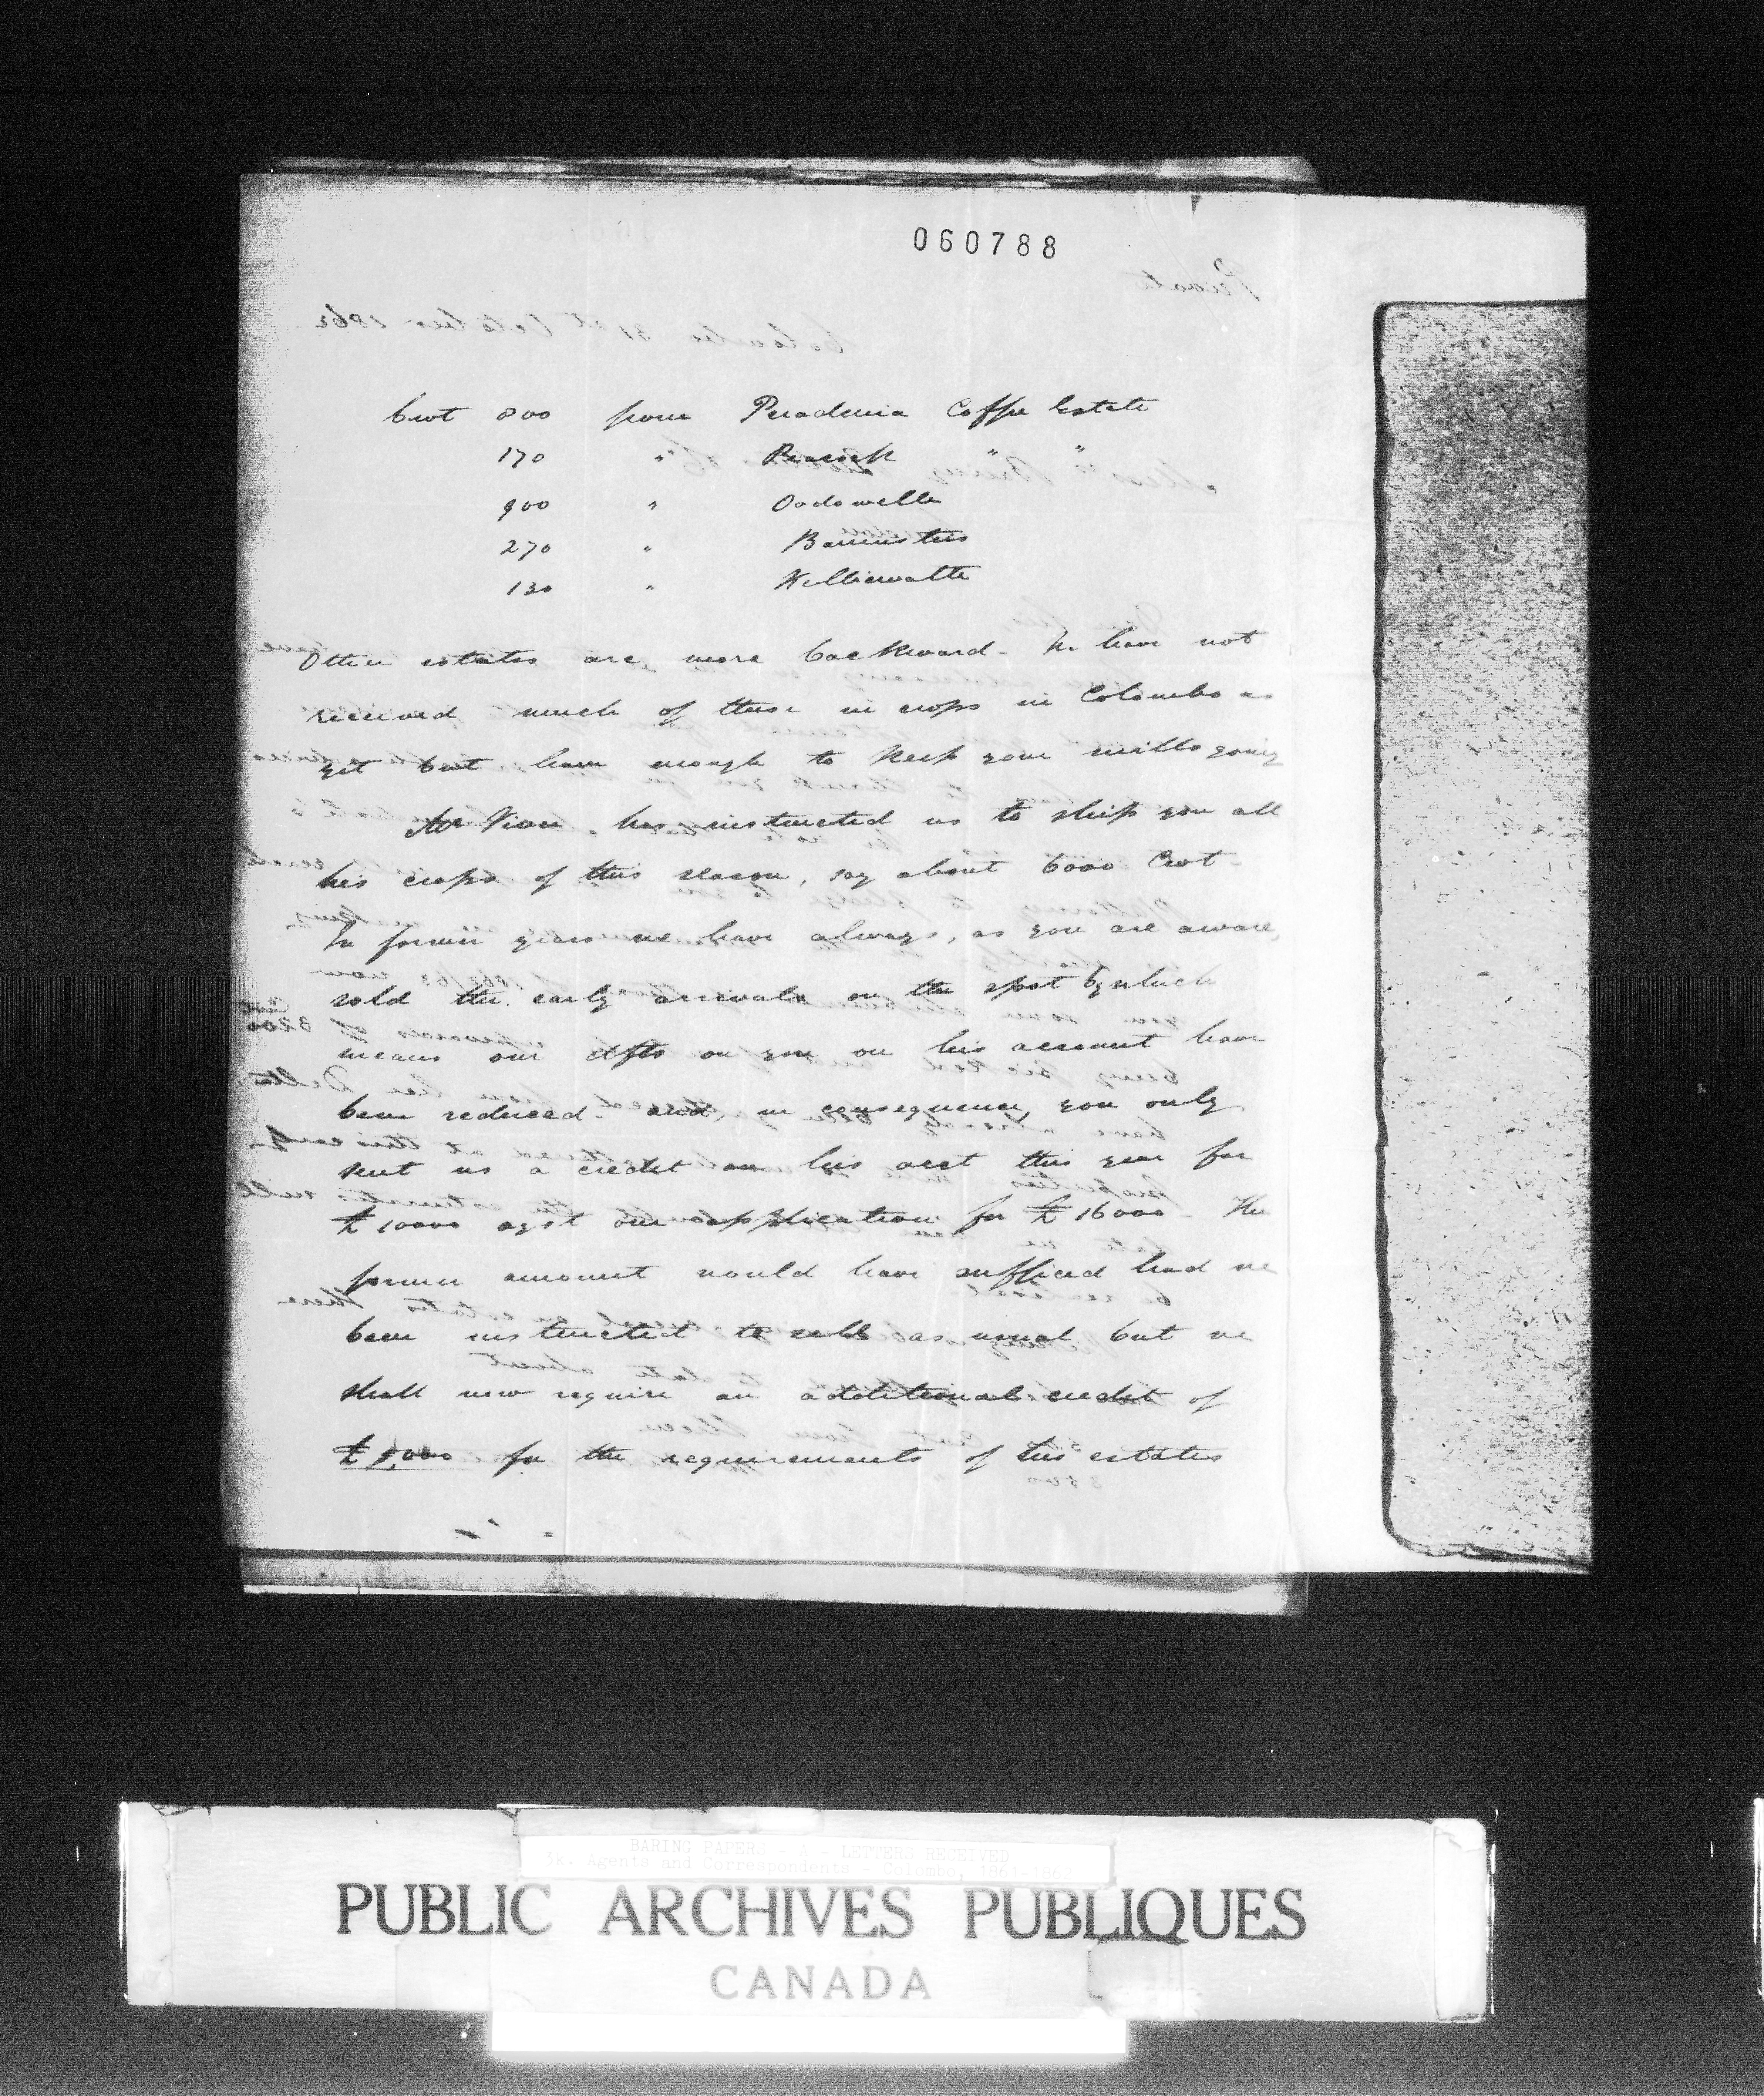 060788
Cwt 800 from Peradenia Coffee Estate
170 " Peacock " "
900 " Oodowelle
270 " Bannisters
130 " Kelliewatte
Other estates are more backward - We have not
received much of these in crops in Colombo as
yet but have enough to keep your mills going
Mr has instructed us to ship you all
his crops of this season, say about 6000 Cwt -
In former years we have always, as you are aware,
sold the early arrivals on the spot by which
means our dfts on you on his account have
been reduced - and, in consequence, you only
sent us a credit on his acct this year for
£10000 agst our application for £16000 - The
former amount would have sufficed had we
been instructed to sell as usual but we
shall now require an additional credit of
£5,000 for the requirements of his estates
BARING PAPERS - A - LETTERS RECEIVED
Agents and Correspondents - Colombo,
PUBLIC ARCHIVES PUBLIQUES
CANADA